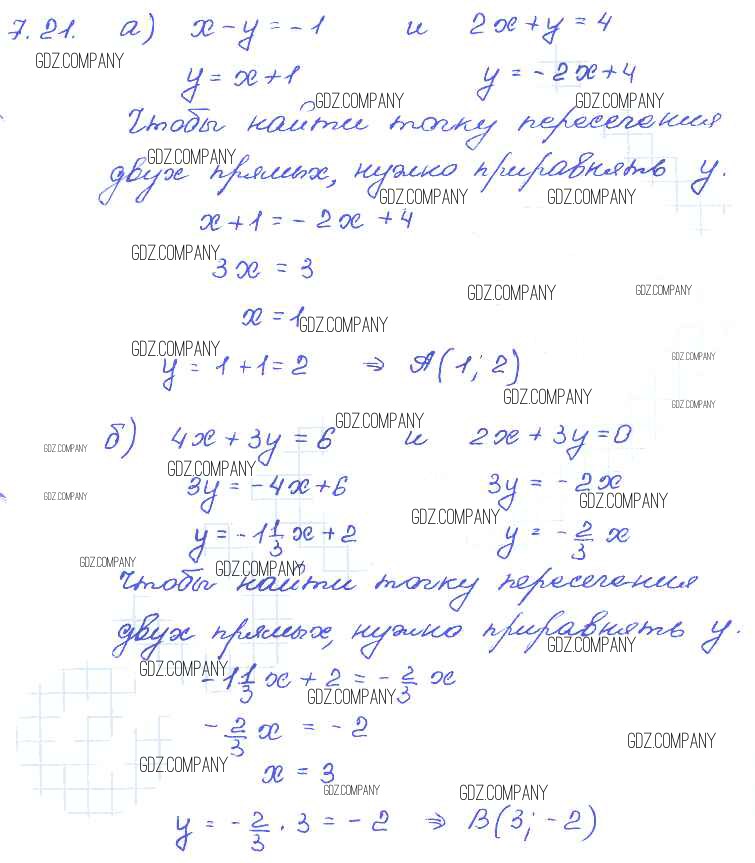 7.21. а) x - y = -1 и 2x + y = 4
GDZ.COMPANY
y = x + 1 y = -2x + 4
GDZ.COMPANY GDZ.COMPANY
Чтобы найти точку пересечения
GDZ.COMPANY
двух прямых, нужно приравнять y.
GDZ.COMPANY GDZ.COMPANY
x + 1 = -2x + 4
GDZ.COMPANY
3x = 3
GDZ.COMPANY GDZ.COMPANY
x = 1
GDZ.COMPANY
GDZ.COMPANY GDZ.COMPANY
y = 1 + 1 = 2 ⇒ A(1; 2)
GDZ.COMPANY GDZ.COMPANY
GDZ.COMPANY
GDZ.COMPANY б) 4x + 3y = 6 и 2x + 3y = 0
GDZ.COMPANY
3y = -4x + 6 3y = -2x
GDZ.COMPANY GDZ.COMPANY
GDZ.COMPANY
y = -1 1/3 x + 2 y = -2/3 x
GDZ.COMPANY GDZ.COMPANY
Чтобы найти точку пересечения
двух прямых, нужно приравнять y.
GDZ.COMPANY
GDZ.COMPANY
-1 1/3 x + 2 = -2/3 x
GDZ.COMPANY
-2/3 x = -2
GDZ.COMPANY
GDZ.COMPANY
x = 3
GDZ.COMPANY GDZ.COMPANY
y = -2/3 · 3 = -2 ⇒ B(3; -2)